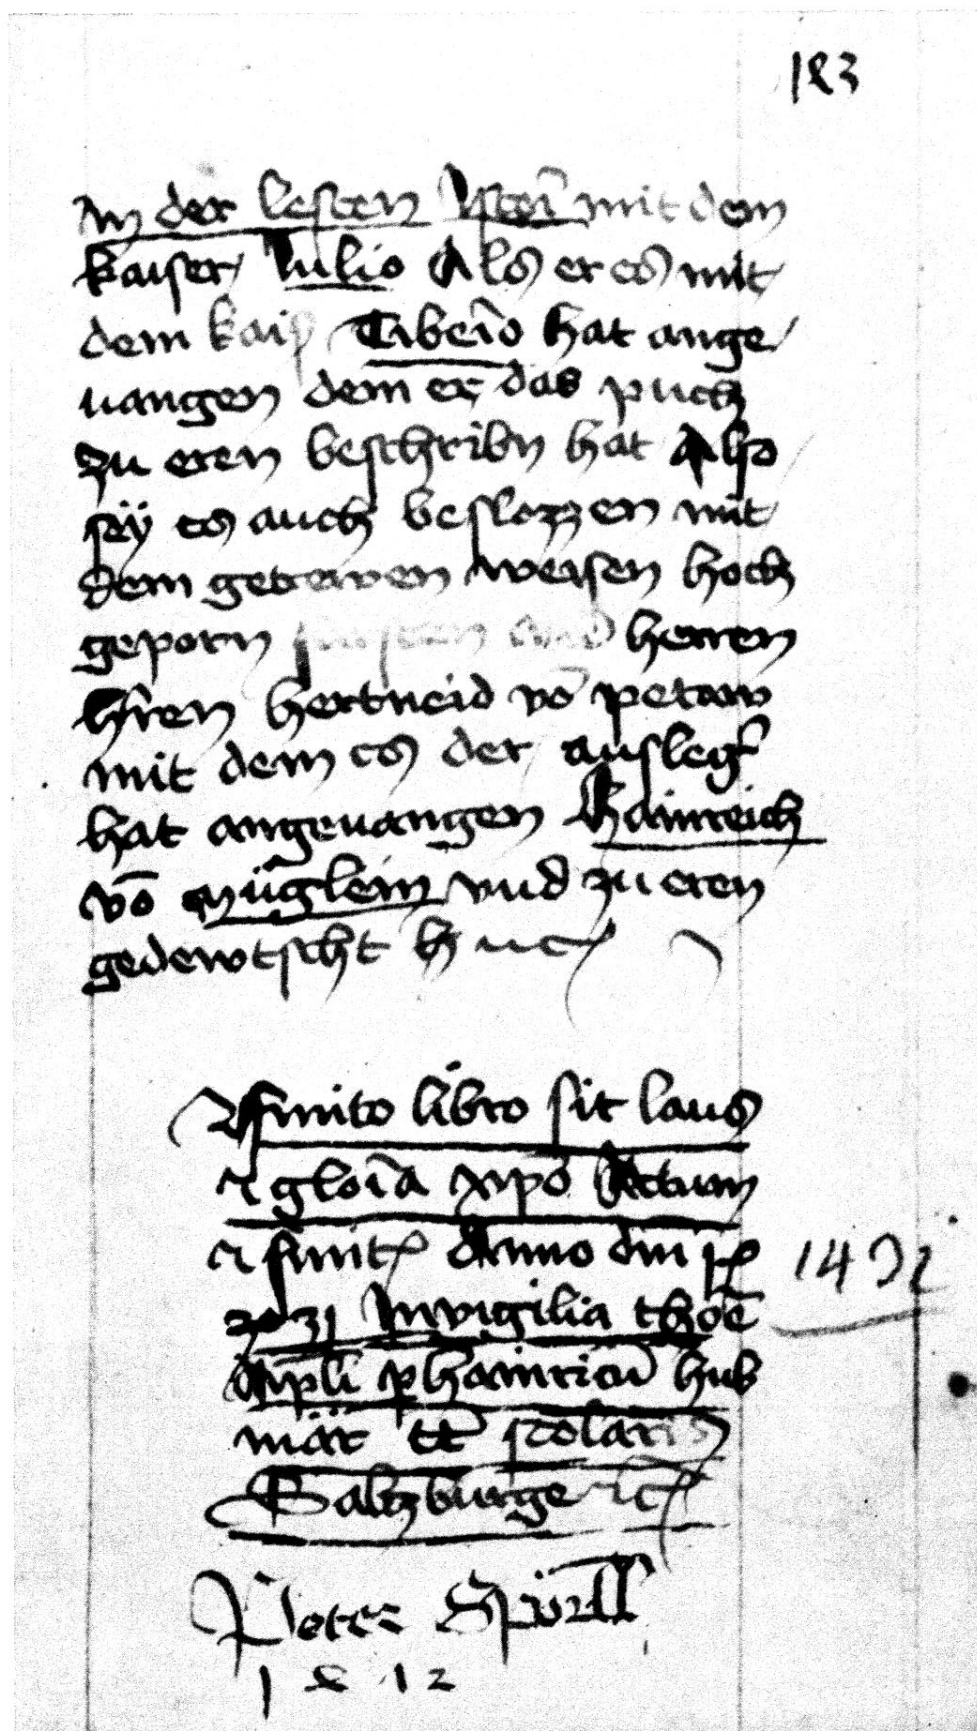 183
In der lesten ystori mit dem
kaiser Iulio Als er es mit
dem kaiser Tiberio hat ange
uangen dem er das puch
zu eren beschribn hat Also
sey es auch beslozzen mit
dem getrewen weisen hoch
geporn fursten vnd herren
hern hertneid võ petaw
mit dem es der ausleger
hat angeuangen Hainreich
võ Müglein vnd zu eren
gedewtscht
Finito libro sit laus
⁊ gloria xpo Actum
⁊ finit Anno dni
31 In vigilia thome
Apli p hainricu hub
mär scolaris
Saltzburge
Peter Spörll